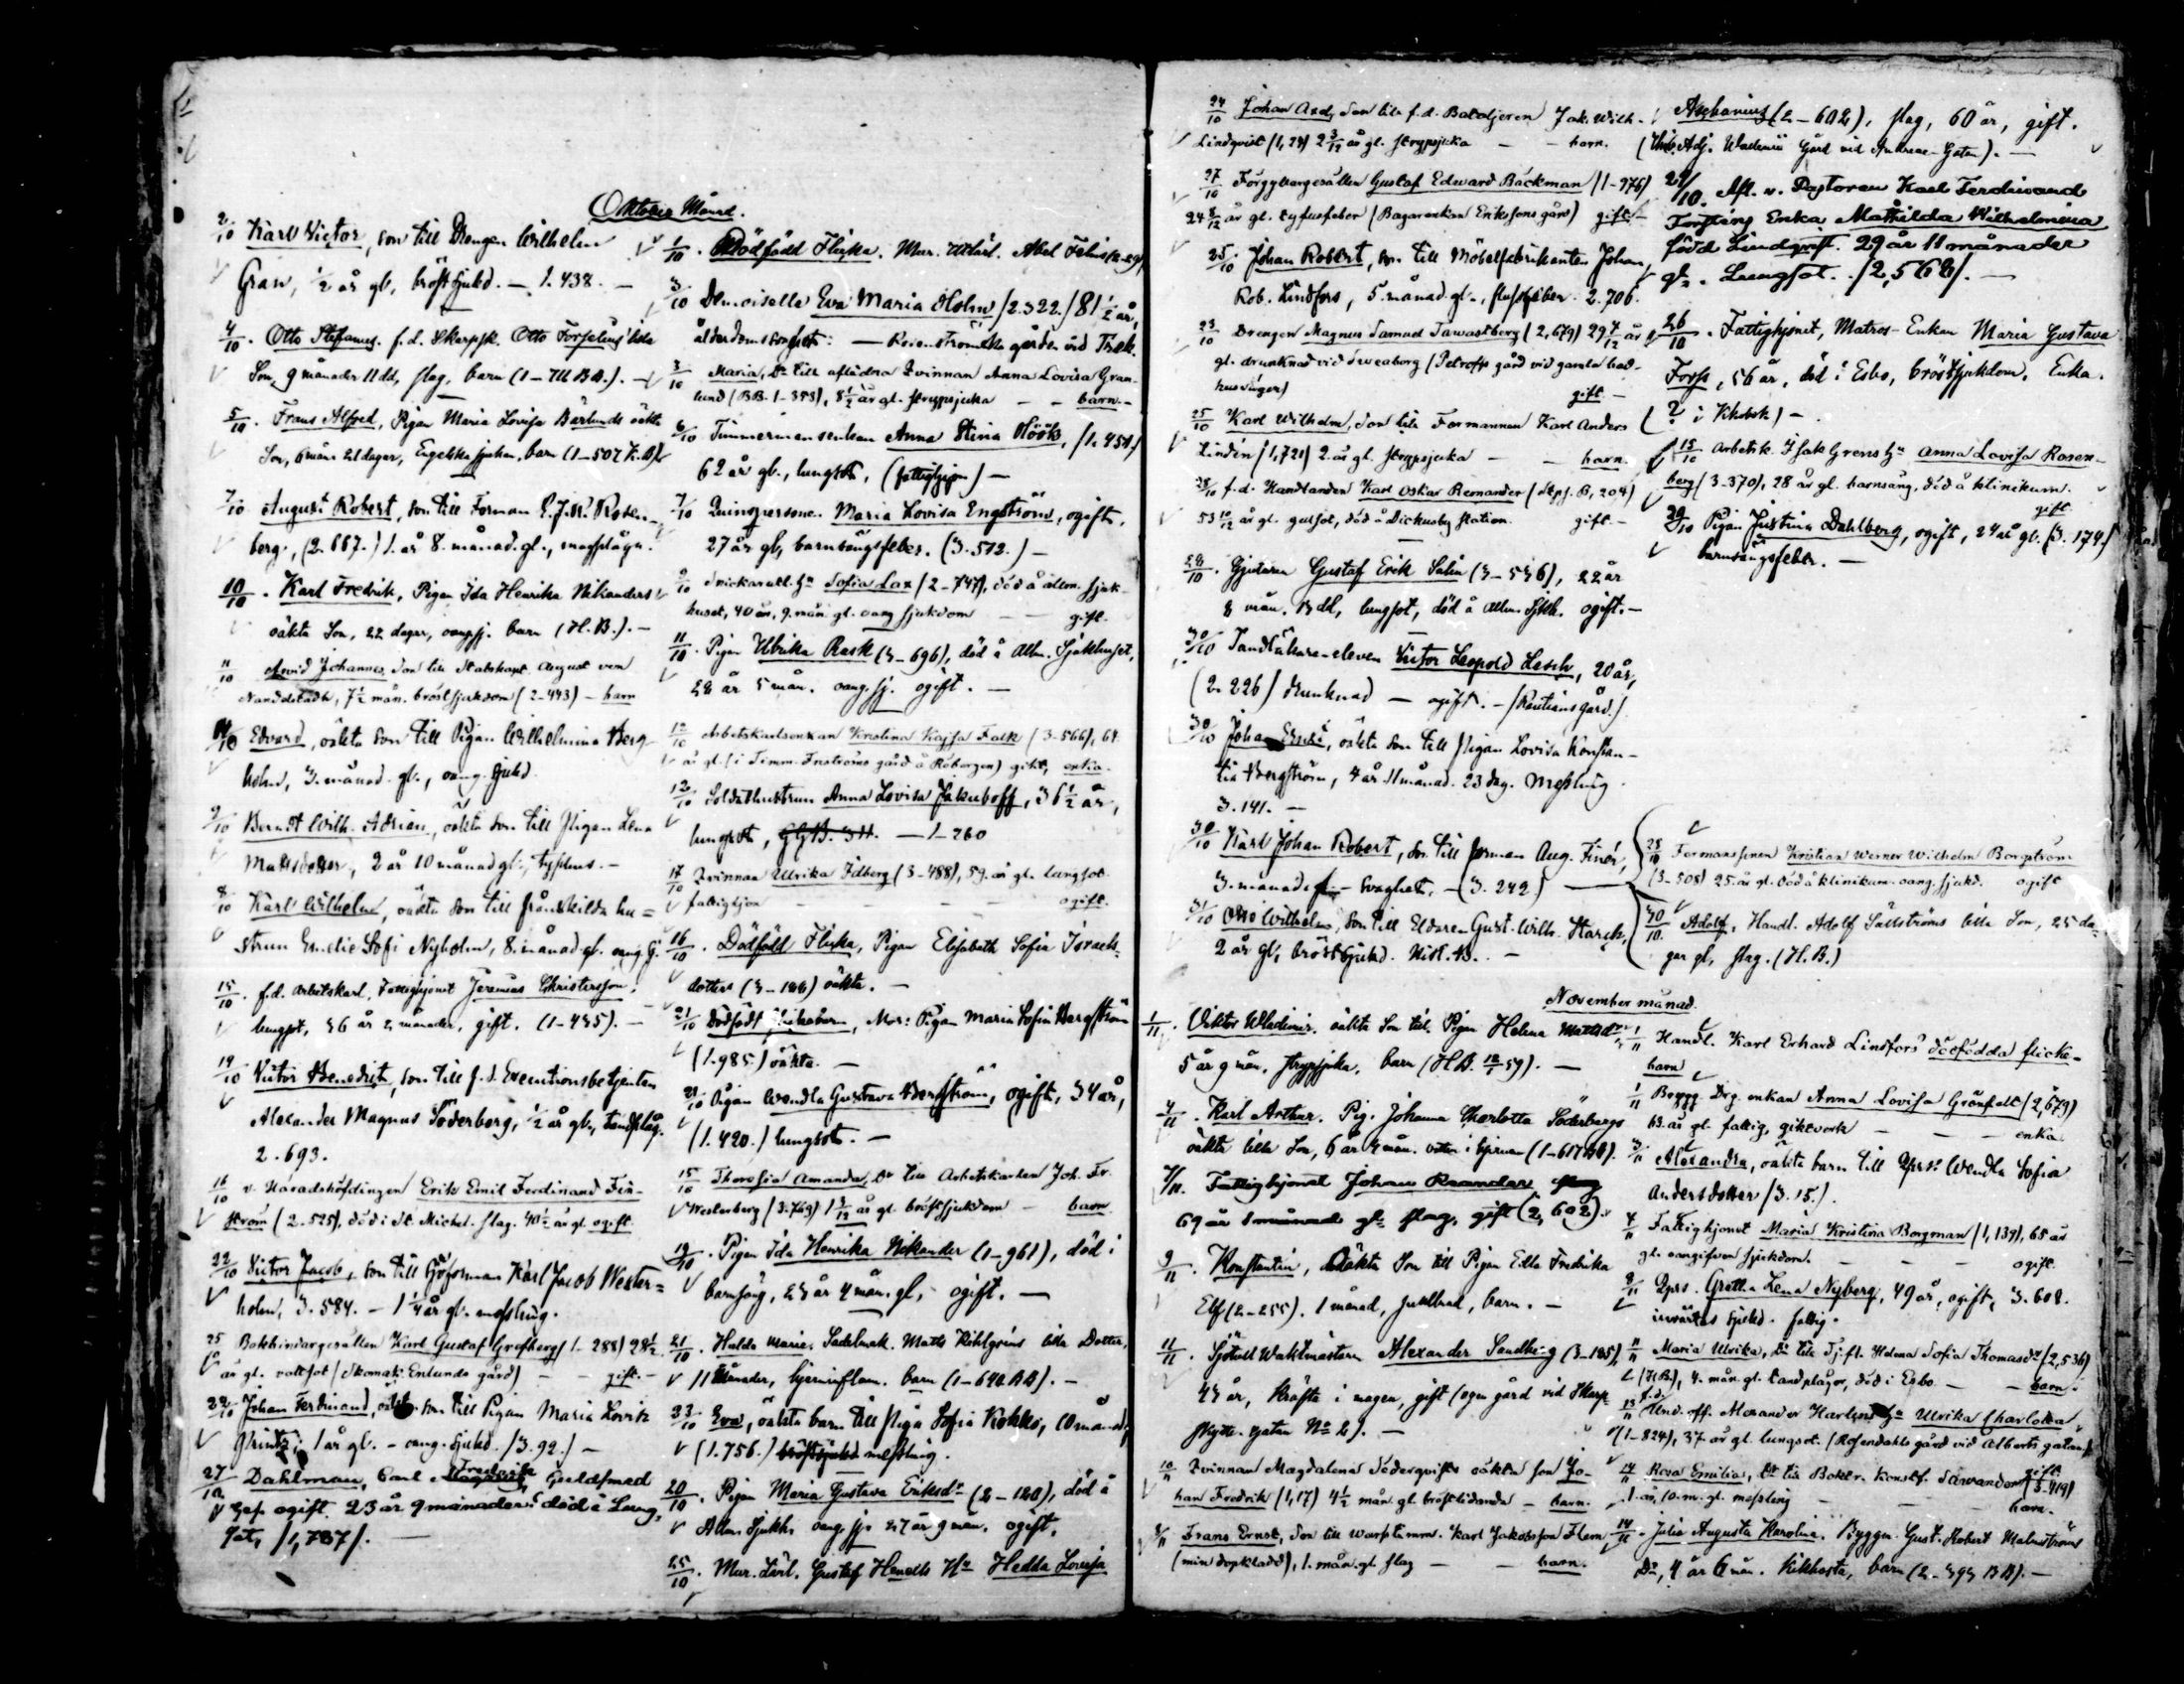 Oktober Månad.
2/10 Karl Victor, son till Drengen Wilhelm
Gran, 1/2 år gl, bröstsjukd. — 1.438. —
4/10. Otto Stefanus. f.d. Skarpsk. Otto Forselius' äkta
Son, 9 månader 11 dd, slag, barn (1–711 BB.). —
5/10. Frans Alfred, Pigan Maria Lovisa Bärlunds oäkta
Son, 6 mån 21 dagar, Engelska sjukan, barn (1–507 H.B.)
7/10 August Robert, son till Forman Rosen-
berg, (2.667.) 1. år 8. månad. gl.,
10/10. Karl Fredrik, Pigan Ida Henrika Nikanders
oäkta Son, 22 dagar, oang.sj. barn (H.B.). —
11/10 Arvid Johannes, Son till Stabskapt. August von
Nandelstadh, 7 1/2 mån. bröstsjukdom (2–493) – barn
11/10 Edvard, oäkta son till Pigan Wilhelmina Berg-
holm, 3. månad. gl., oang. sjukd.
9/10 Berndt Wilh. Adrian, oäkta son till Pigan Lena
Mattsdotter, 2 år 10 månad gl., typhus. —
8/10 Karl Wilhelm, oäkta son till frånskilda hu=
strun Emelie Sofi Nyholm, 8. månad. gl. oang. sj.
15/10. f.d. Arbetskarl, Fattighjonet Jeremias Christersson,
lungsot, 36 år 2 månader, gift. (1–435). —
19/10 Victor Benedict, son till f.d. Executionsbetjenten
Alexander Magnus Söderberg, 1/2 år gl., tandplåg.
2.693.
16/10 v. Häradshöfdingen Erik Emil Ferdinand Fin-
ström (2–525), död i St. Michel. slag. 40 1/2 år gl. ogift.
22/10 Victor Jacob, son till Karl Jacob Wester=
holm, 3.584. – 1 1/4 år gl. messling.
25 Bokbindaregesällen Karl Gustaf Grefberg (1–288) 28 1/2
år gl. vattsot (Skomak. Enlunds gård) — – gift. –
22/10 Johan Ferdinand, oäkta son till Pigan Maria Lovisa
1 år gl. – oang. sjukd. (3.92.) —
27/10 Dahlman, Carl Fredrik Guldsmed
Ges. ogift. 23 år 9 månader. död i Lung-
sot, /1,787/. —
1/10. Dödfödd Flicka. Mur. Abel (2–29)
3/10 Demoiselle Eva Maria Holm /2.322./ 81 1/2 år,
ålderdomssvaghet: — gården vid Trek.
3/10 Maria, Dr till aflidna Qvinnan Anna Lovisa Gran-
lund (BB. 1–353), 5 1/2 år gl. strypsjuka — – barn. –
6/10 Timmermansenkan Anna Stina Höök, /1.454./
62 år gl., lungsot, (fattighjon) —
7/10 Qvinspersonen Maria Lovisa Engström, ogift,
27 år gl, barnsängsfeber. (3.512.) —
9/10 Hu Sofia Lax (2–747), död å allm. sjuk-
huset, 40 år, 9. mån. gl. oang sjukdom — gift.
11/10. Pigan Ulrika Rask (3–696), död å Allm. Sjukhuset,
28 år 5 mån. oang.sj. ogift. —
12/10 Arbetskarlsenkan Kristina Kajsa Falk (3–566), 64
år gl. (i Timm. Enströms gård å Röbergen) gikt, enka.
12/10 Soldathustrun Anna Lovisa Jakuboff, 36 1/2 år,
lungsot, — 1–260
17/10 Qvinnan Ulrika Idberg (3–488), 59. år gl. lungsot.
fattighjon — — ogift.
16/10. Dödfödd Flicka, Pigan Elisabeth Sofia Israels-
dotters (3–188) oäkta. —
21/10 Dödfödt flickebarn, Mor: Pigan Maria Sofia Bergström
(1.985.) oäkta. —
21/10 Pigan Wendla Gustava Bergström, ogift, 34 år,
(1.420.) lungsot. —
15/10 Thorosia Amanda, Dr till Arbetskarlen Joh. Fr.
Westerberg (3.769) 1 9/12 år gl. bröstsjukdom – barn.
19/10. Pigan Ida Henrika Nikander (1–961), död i
barnsäng, 23 år 4 mån. gl, – ogift. —
21/10. Hulda Maria. Sadelmak. Matts Kihlgréns äkta Dotter,
11 månader, hjerninflam. barn (1–640 BB). —
23/10 Eva, oäkta barn till Piga Sofia Kokko, 10 månad,
(1.756.) bröstsjukd messling.
20/10. Pigan Maria Gustava Eriksdr (2–120), död å
Allm. Sjukh. oang. sj. 27 år 9 mån. ogift.
25/10. Mur. Lärl. Gustaf Hu Hedda Lovisa
24/10 Johan Axel, Son till f.d. Bataljeren Jak. Wilh.
Lindqvist (1,24) 2 3/12 år gl. strypsjuka — – barn.
27/10 Förgyllaregesällen Gustaf Edward Bäckman (1–976)
24 8/12 år gl. tyfusfeber (Bagarenkan Erikssons gård) gift –
25/10. Johan Robert, son till Möbelfabrikanten Johan
Rob. Lindfors, 5. månad. gl., 2.706.
23/10 Drengen Magnus Samuel Tawastberg (2,679) 29 7/12 år
gl. drunknad vid Sveaborg (Petroffs gård vid gamla bad-
hus vägen) gift –
25/10 Karl Wilhelm, Son till Formannen Karl Anders
Lindén (1,721) 2. år gl. strypsjuka — – barn.
28/10 f.d. Handlanden Karl Oskar Remander (Skpf. B, 204)
53 10/12 år gl. gulsot, död å Dickursby station. gift –
28/10. Gjutaren Gustaf Erik Salin (3–536), 22 år
8 mån. 13 dd, lungsot, död å Allm. Sjukh. ogift. –
30/10 Tandläkare-eleven Victor Leopold Lesch, 20 år,
(2.226) drunknad — ogift. – (Rautians gård.)
30/10 Johan Ernst, oäkta son till Pigan Lovisa Konstan-
tia Bergström, 4 år 11 månad. 23 dag. Messling.
3.141. —
30/10 Karl Johan Robert, son till forman Aug. Finér,
3. månader gl. – svaghet. – (3.242.) —
31/10 Otto Wilhelm, son till Eldaren Gust. Wilh. Starck,
2 år gl, bröstsjukd. —
Aschanius (2–602), slag, 60 år, gift.
(Univ. Adj. Wadenii gård vid Andreæ-Gatan). —
29/10. Afl. v. Pastoren Karl Ferdinand
Forsténs Enka Mathilda Wilhelmina
född Lindqvist. 29 år 11 månader
gl. Lungsot. /2,562/. —
26/10. Fattighjonet, Matros-Enkan Maria Gustava
Forss, 56 år, död i Esbo, bröstsjukdom. Enka.
(? i Kkobok) –
15/10 Arbetsk. Isak Grens Hu Anna Lovisa Rosen-
berg (3–370), 28 år gl. barnsäng, död å klinikum.
gift.
29/10 Pigan Justina Dahlberg, ogift, 24 år gl. (3.174.)
barnsängsfeber. —
28/10 Formanssonen Kristian Werner Wilhelm Borgström
(3–508) 25. år gl. död å klinikum. oang. sjukd. ogift
30/10. Adolf, Handl. Adolf Sällströms äkta Son, 25 da-
gar gl, slag. (H.B.)
November månad.
1/11. Viktor Wladimir. oäkta Son till Pigan Helena Mattsdr
5 år 9 mån. strypsjuka, barn (H.B. 59). —
4/11. Karl Arthur. Pig. Johanna Charlotta Söderbergs
oäkta Son, 6 år 4 mån. vatten i hjernan (1–617 BB).
7/11. Fattighjonet Johan Reander slag
69 år 1 månad gl. slag, gift (2,602).
9/11. Konstantin, Oäkta Son till Pigan Edla Fredrika
Elf (2–255). 1 månad, barn. —
11/11. Sjötull Waktmästaren Alexander Sundberg (3–185),
43 år, Kräfta i magen, gift (egen gård vid Skarp-
skytte-gatan No 2). —
10/11 Qvinnan Magdalena Söderqvists oäkta son Jo-
han Fredrik (1,17) 4 1/2 mån. gl. bröstlidande – barn.
8/11 Frans Ernst, Son till warfstimm. Karl Jakobsson Flem
(min dopkladd), 1. mån. gl. slag — – barn.
1/11 Handl. Karl Erhard Lindfors' dödfödda flicke-
barn
1/11 Brygg. Drg. enkan Anna Lovisa Grönfelt (2,679)
63. år gl. fattig, giktvärk — — enka
3/11 Alexandra, oäkta barn till Qprs: Wendla Sofia
Andersdotter (3.15.).
4/11 Fattighjonet Maria Kristina Borgman (1,139), 65 år
gl. oangifven sjukdom. — — ogift.
8/11 Qprs. Gretha Lena Nyberg, 49 år, ogift, 3.608.
invärtes sjukd. fattig.
11/11 Maria Ulrika, Dr till Tj.fl. Helena Sofia Thomasdr (2,536)
(H.B.), 4. mån. gl. tandplågor, död i Esbo — – barn.
13/11 f.d. Und. off. Alexander Hu Ulrika Charlotta
(1–824), 37 år gl. lungsot. (Rosendahls gård vid Alberts gatan)
gift.
14/11 Rosa Emilia, Dr till Bokhr. Konst. Sawander (3–419)
1. år, 10. m. gl. messling — — barn.
14/11. Julia Augusta Karolina. Byggm. Gust. Robert Malmströms
Dr, 4 år 6 mån. Kikhosta, barn (2–393 BB). —